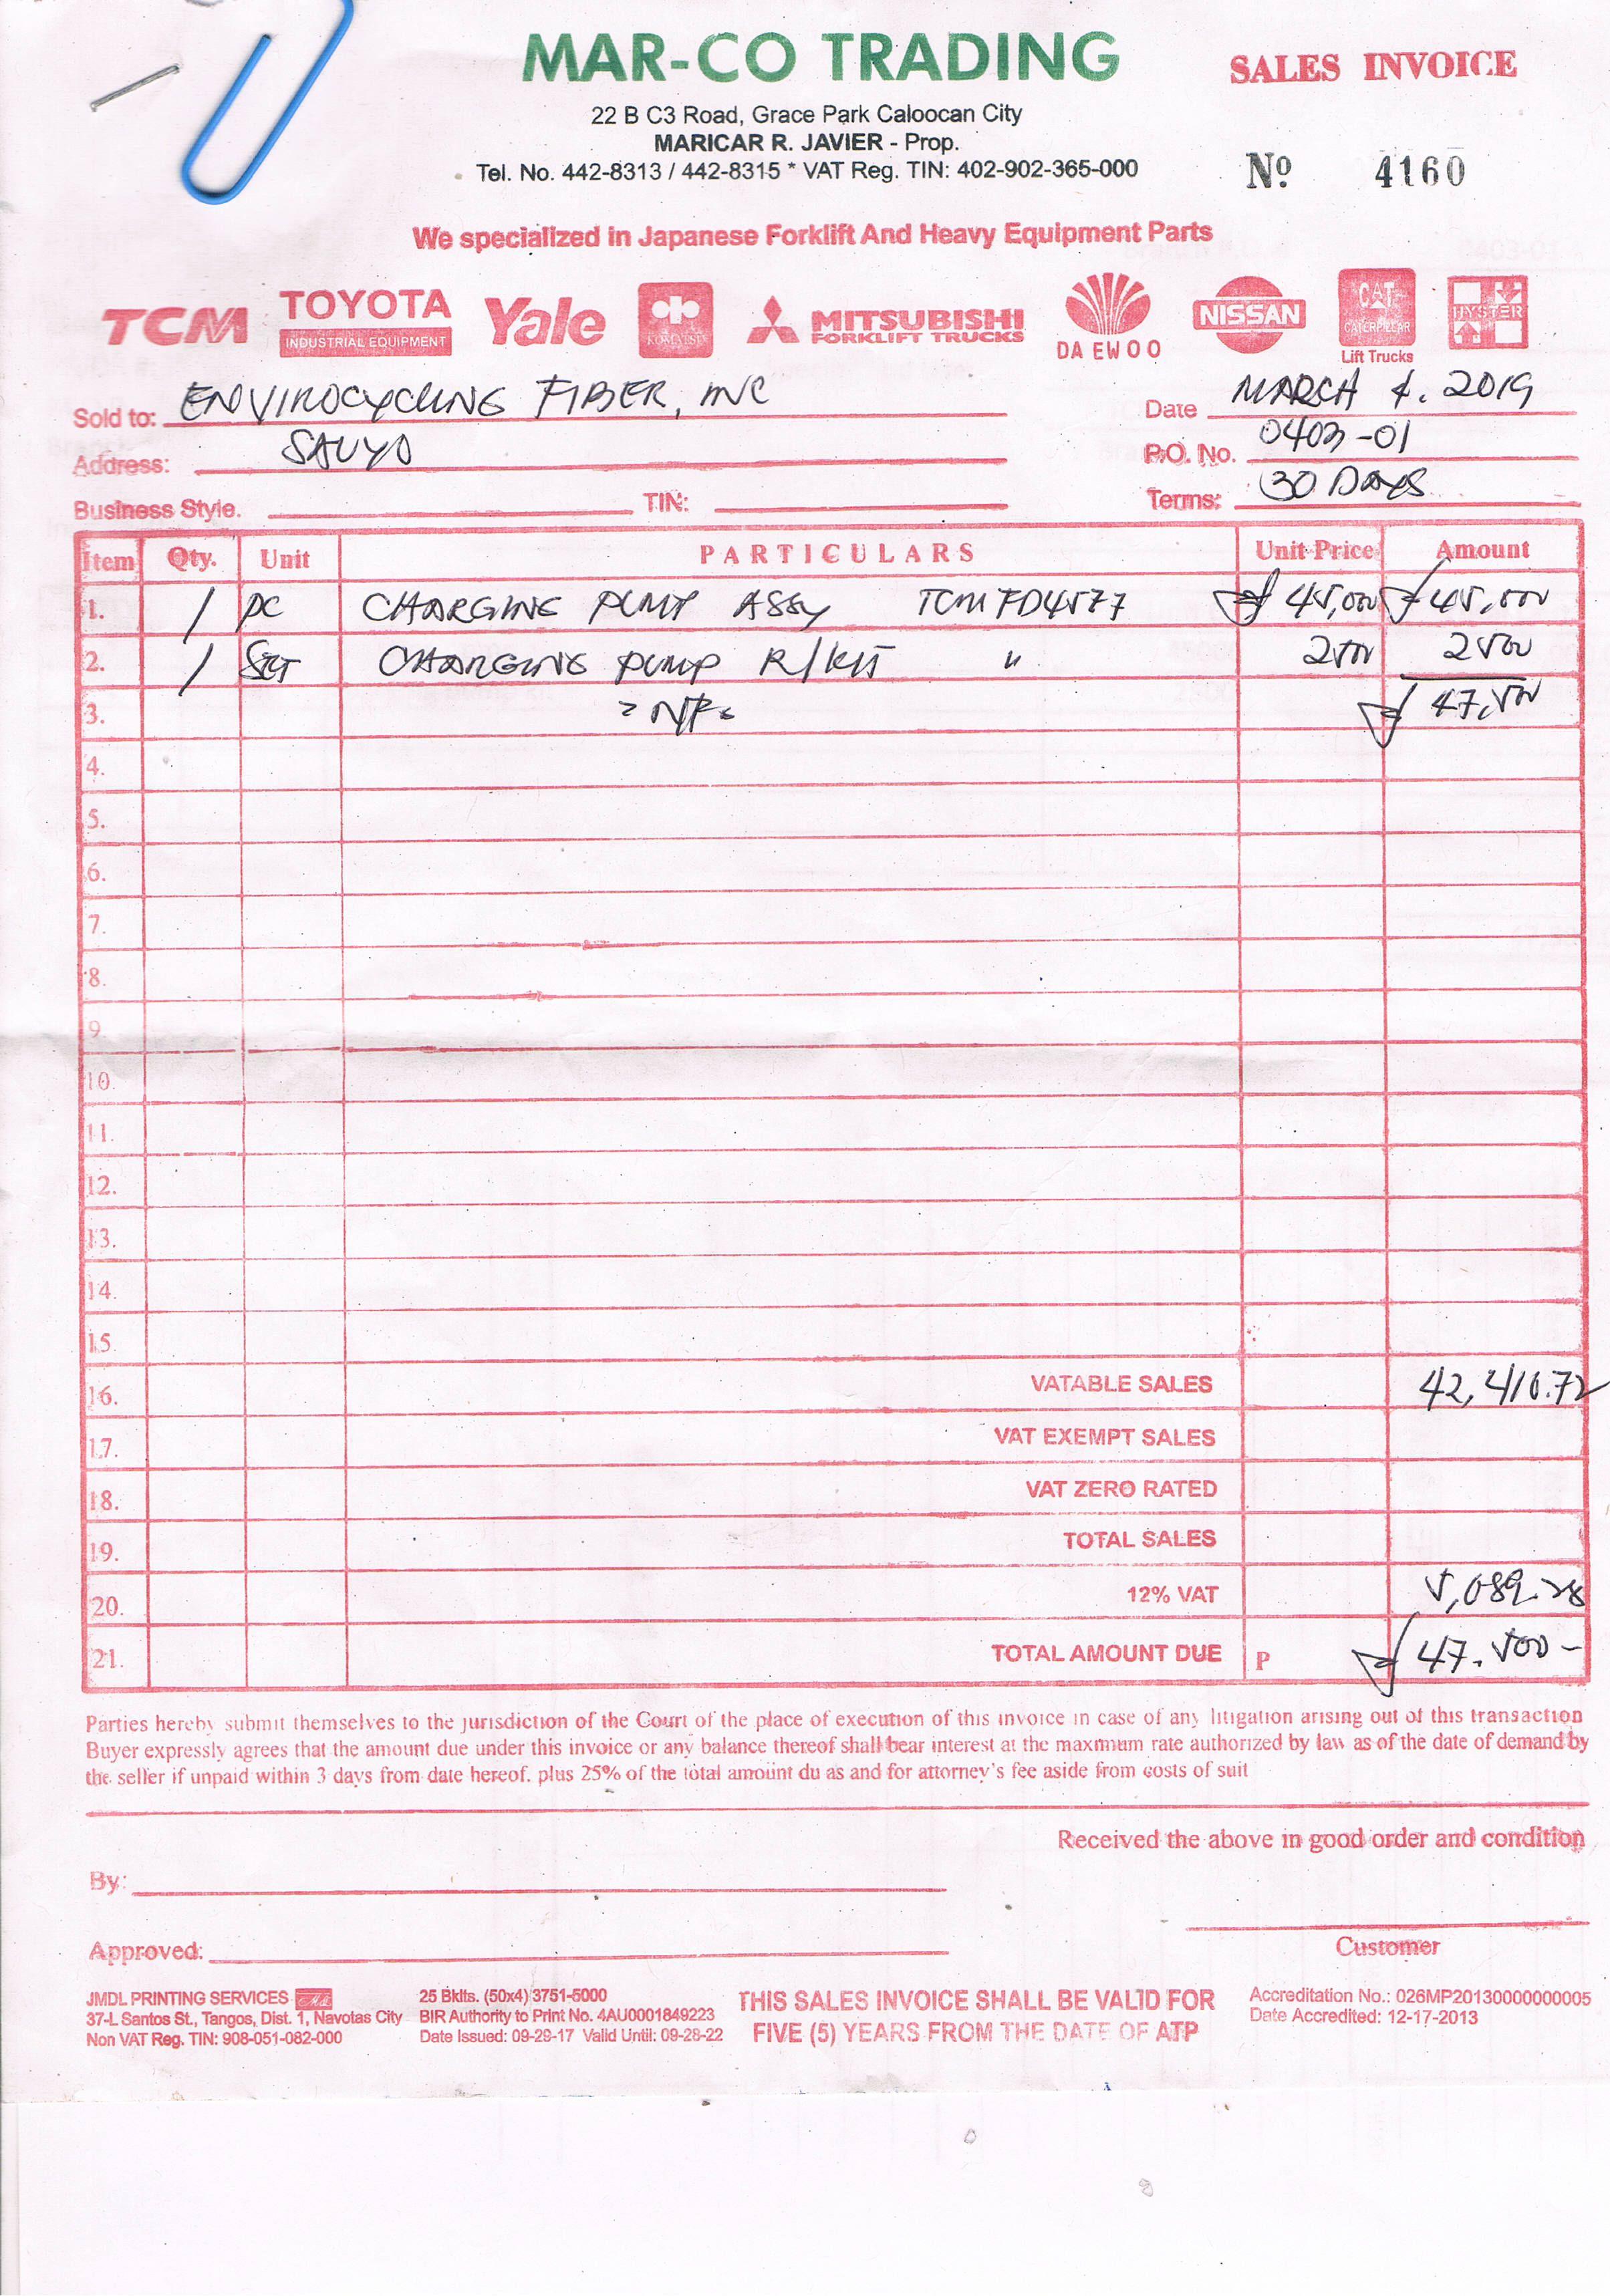 MAR-CO TRADING
SALES INVOICE
22 B C3 Road, Grace Park Caloocan City
MARICAR R. JAVIER - Prop.
Tel. No. 442-8313 / 442-8315 * VAT Reg. TIN: 402-902-365-000
Nº 4160
We specialized in Japanese Forklift And Heavy Equipment Parts
TCM TOYOTA INDUSTRIAL EQUIPMENT Yale KOMATSU MITSUBISHI FORKLIFT TRUCKS DAEWOO NISSAN CAT CATERPILLAR Lift Trucks HYSTER
Sold to: ENVIROCYCLING FIBER, INC Date MARCH 4, 2019
Address: SAUYO P.O. No. 0403-01
Business Style. TIN: Terms: 30 DAYS
Item Qty. Unit PARTICULARS Unit Price Amount
1. 1 PC CHARGING PUMP ASSY TCM FD45T7 45,000 45,000
2. 1 SET CHARGING PUMP R/KIT " 2500 2500
3. 47,500
4.
5.
6.
7.
8.
9.
10.
11.
12.
13.
14.
15.
16. VATABLE SALES 42,410.72
17. VAT EXEMPT SALES
18. VAT ZERO RATED
19. TOTAL SALES
20. 12% VAT 5,089.28
21. TOTAL AMOUNT DUE P 47,500-
Parties hereby submit themselves to the jurisdiction of the Court of the place of execution of this invoice in case of any litigation arising out of this transaction
Buyer expressly agrees that the amount due under this invoice or any balance thereof shall bear interest at the maxmum rate authorized by law as of the date of demand by
the seller if unpaid within 3 days from date hereof. plus 25% of the total amount du as and for attorney's fee aside from costs of suit
Received the above in good order and condition
By:
Approved:
Customer
JMDL PRINTING SERVICES
37-L Santos St., Tangos, Dist. 1, Navotas City
Non VAT Reg. TIN: 908-051-082-000
25 Bklts. (50x4) 3751-5000
BIR Authority to Print No. 4AU0001849223
Date Issued: 09-29-17 Valid Until: 09-28-22
THIS SALES INVOICE SHALL BE VALID FOR
FIVE (5) YEARS FROM THE DATE OF ATP
Accreditation No.: 026MP20130000000005
Date Accredited: 12-17-2013